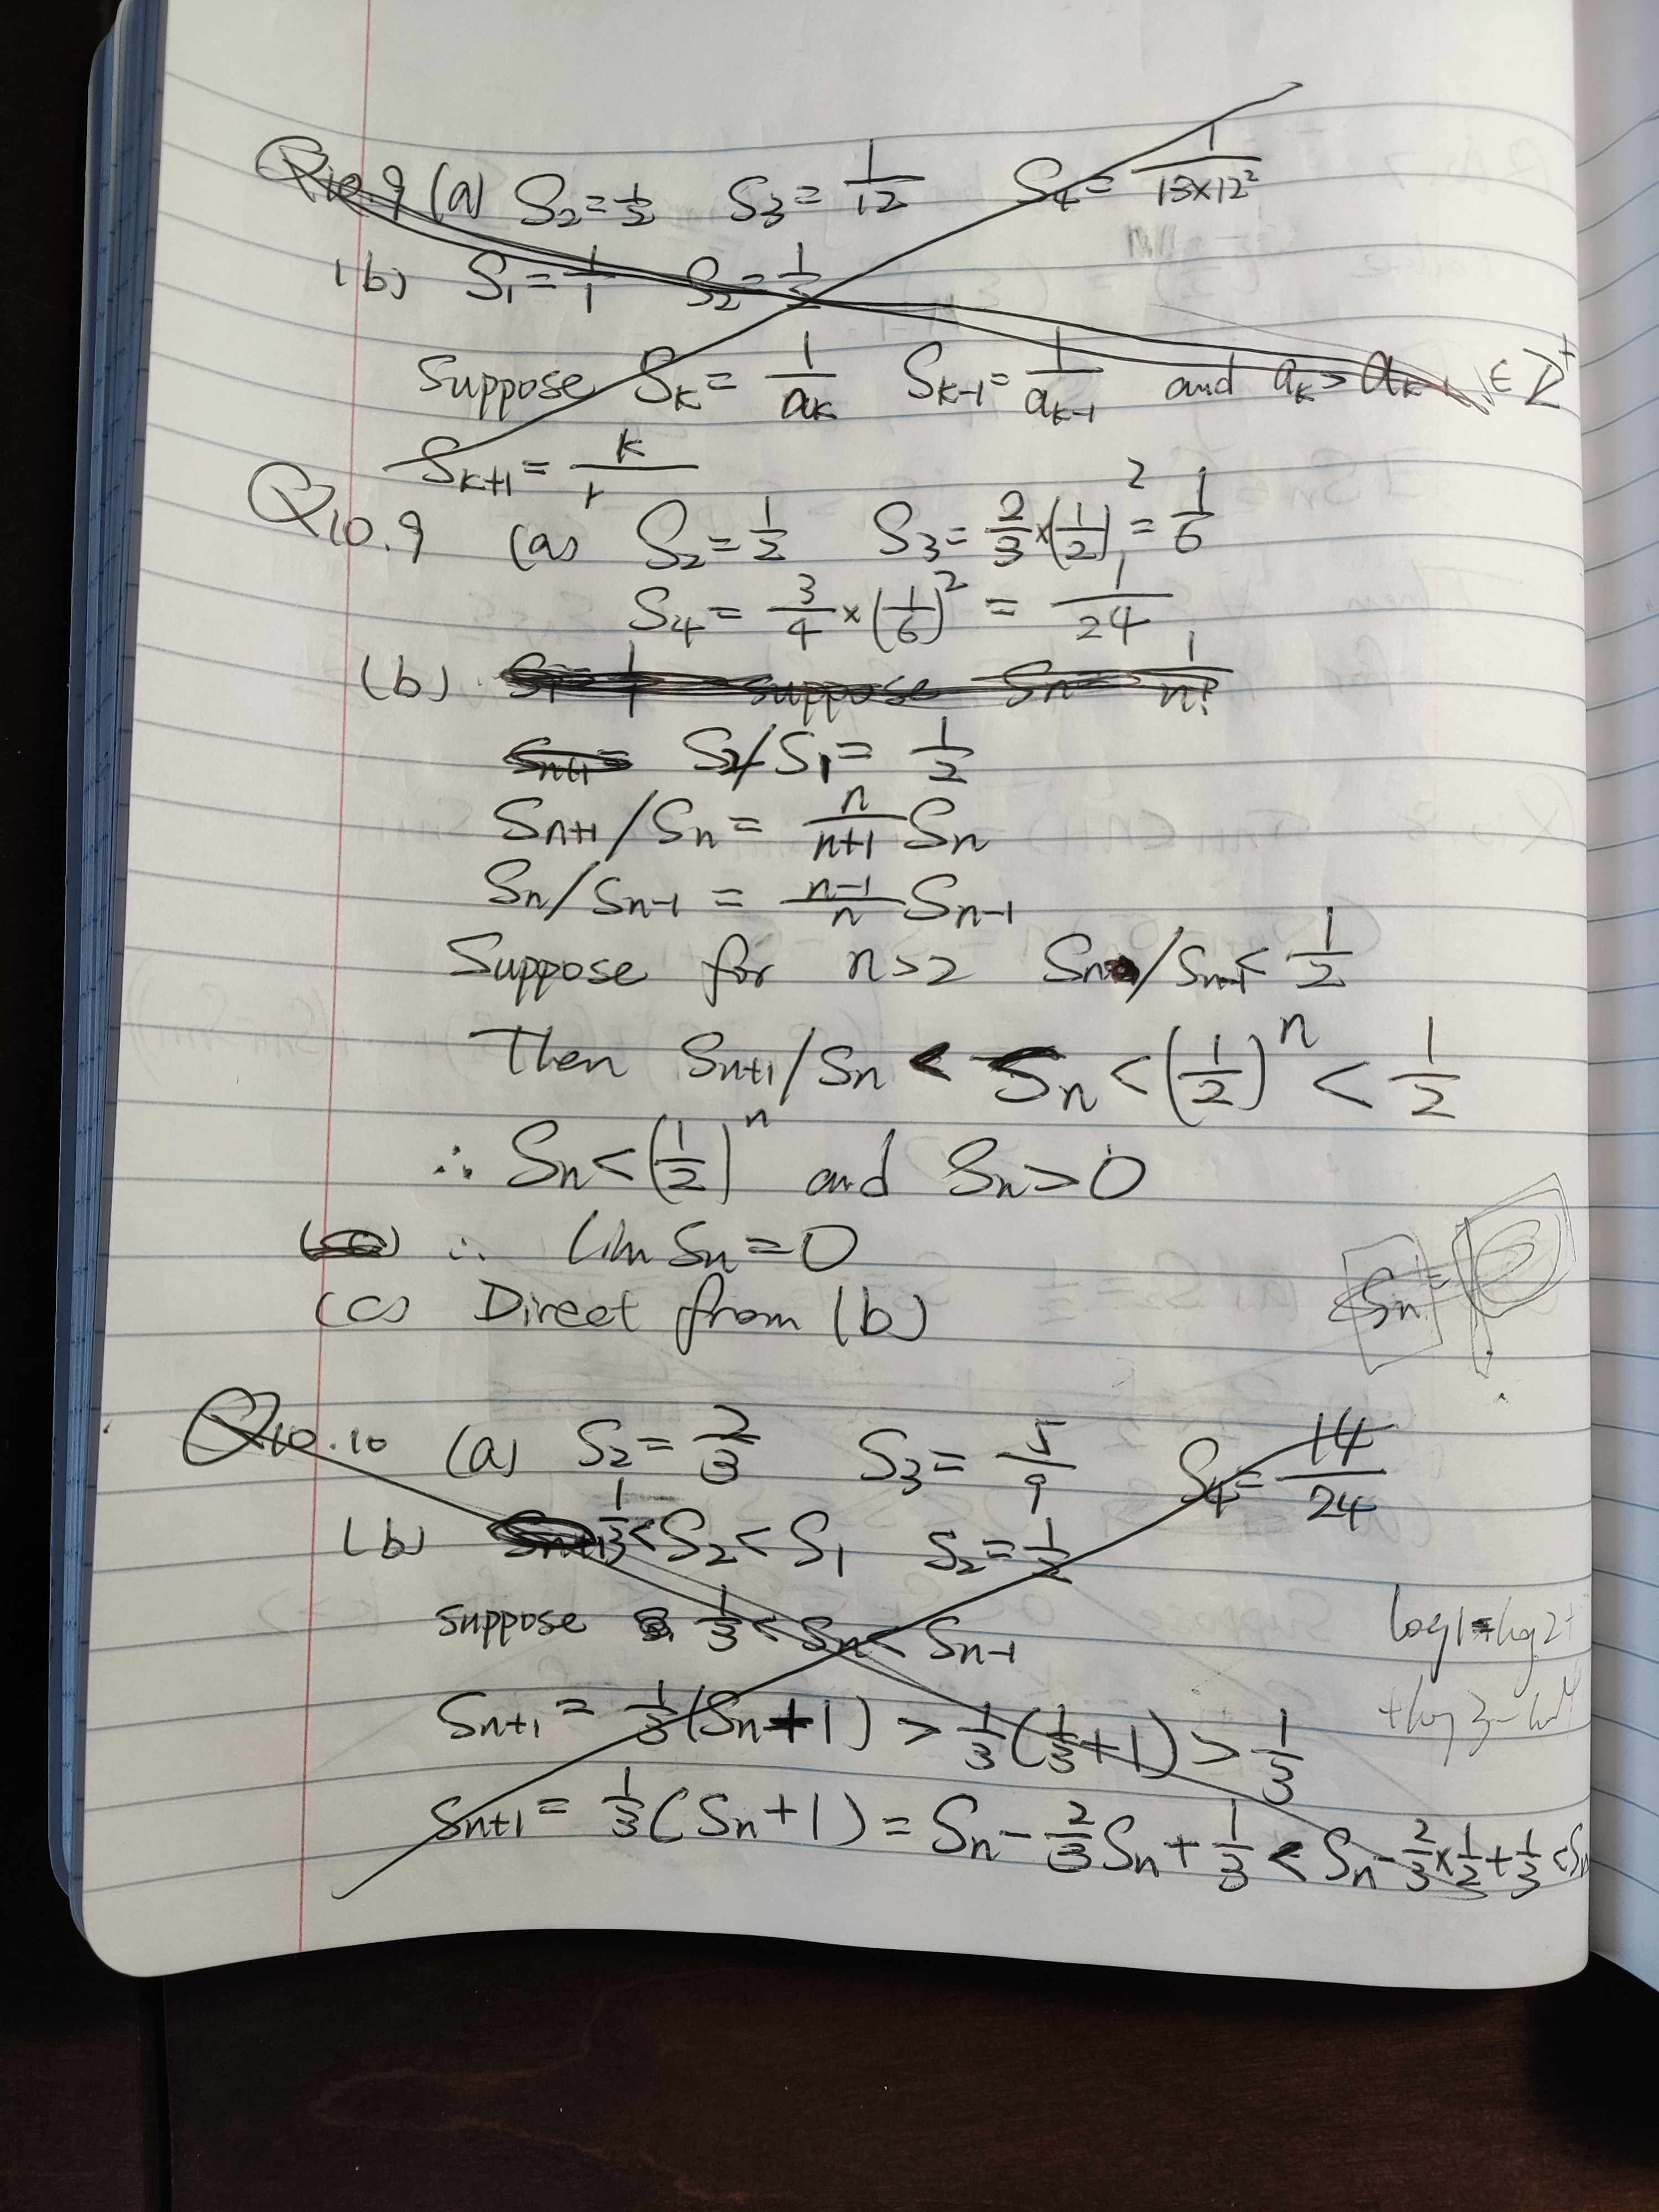 Q10.9 (a) S₂=1/2 S₃=1/12 S₄=1/(13×12²)
(b) S₁=1/1 S₂=1/2
Suppose Sₖ=1/aₖ Sₖ₋₁=1/aₖ₋₁ and aₖ>aₖ₋₁ ∈ Z⁺
Sₖ₊₁=k/
Q10.9 (a) S₂=1/2 S₃=2/3×(1/2)²=1/6
S₄=3/4×(1/6)²=1/24
(b) S₁=1/1 suppose Sₙ=1/n!
Sₙ₊₁= S₂/S₁=1/2
Sₙ₊₁/Sₙ=n/(n+1) Sₙ
Sₙ/Sₙ₋₁=(n-1)/n Sₙ₋₁
Suppose for n>2 Sₙ/Sₙ₋₁<1/2
Then Sₙ₊₁/Sₙ < Sₙ<(1/2)ⁿ<1/2
∴ Sₙ<(1/2)ⁿ and Sₙ>0
∴ lim Sₙ=0
(c) Direct from (b)
Sₙ=
Q10.10 (a) S₂=2/3 S₃=5/9 S₄=14/24
(b) 1/3<S₂<S₁ S₂=1/2
suppose 1/3<Sₙ<Sₙ₋₁
log1+log2+
Sₙ₊₁=1/3(Sₙ+1)>1/3(1/3+1)>1/3
+log3-
Sₙ₊₁=1/3(Sₙ+1)=Sₙ-2/3Sₙ+1/3<Sₙ-2/3×1/2+1/3<Sₙ